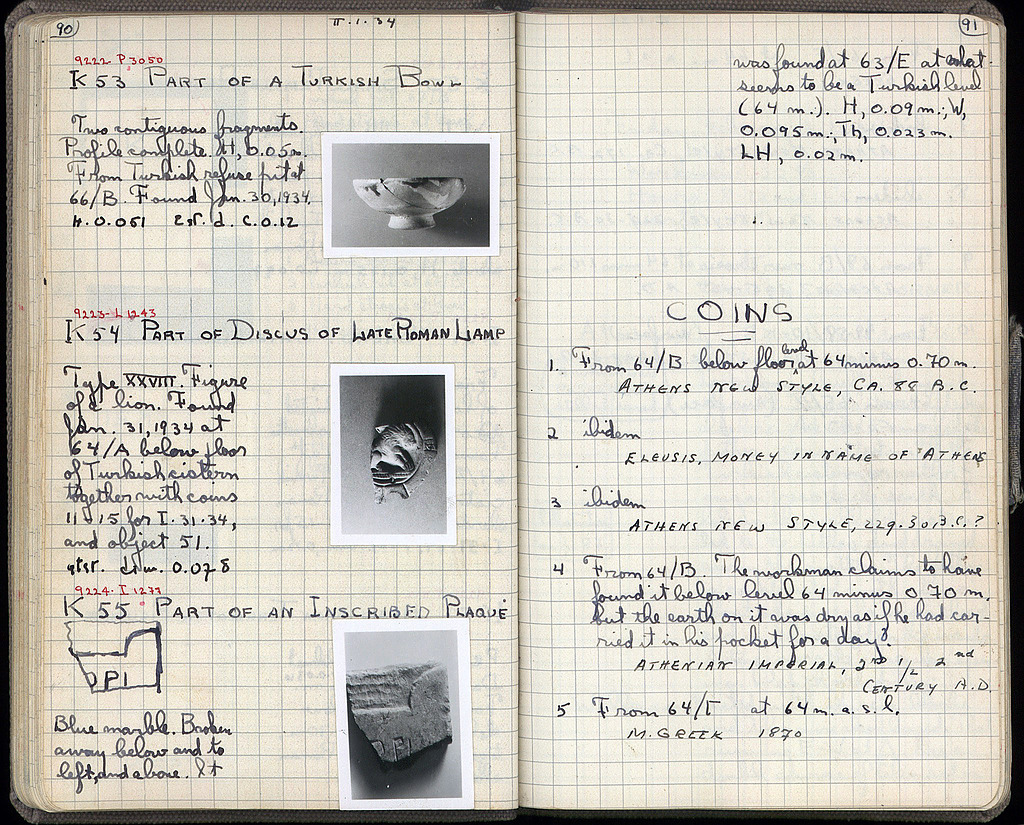 90
II.1.34
9222 P3050
K 53 PART OF A TURKISH BOWL
Two contiguous fragments.
Profile complete. H, 0.05m.
From Turkish refuse pit at
66/B. Found Jan. 30, 1934.
H. 0.051 Est. d. C. 0.12
9223- L 1243
K 54 PART OF DISCUS OF LATE ROMAN LAMP
Type XXVIII. Figure
of a lion. Found
Jan. 31, 1934 at
64/A below floor
of Turkish cistern
together with coins
11-15 for I.31.34,
and object 51.
dim. 0.078
9224- I 1277
K 55 PART OF AN INSCRIBED PLAQUE
PI
Blue marble. Broken
away below and to
left, and above. It
91
was found at 63/E at what
seems to be a Turkish level
(64 m.). H, 0.09m.; W,
0.095m.; Th, 0.023m.
LH, 0.02m.
COINS
1. From 64/B below floor level, at 64 minus 0.70m.
ATHENS NEW STYLE, CA. 88 B.C.
2 ibidem
ELEUSIS, MONEY IN NAME OF ATHENS
3 ibidem
ATHENS NEW STYLE, 229-30, B.C.?
4 From 64/B. The workman claims to have
found it below level 64 minus 0.70m.
but the earth on it was dry as if he had car-
ried it in his pocket for a day?
ATHENIAN IMPERIAL, 2nd 1/2 2nd
CENTURY A.D.
5 From 64/Γ at 64 m. a. s. l.
M. GREEK 1870